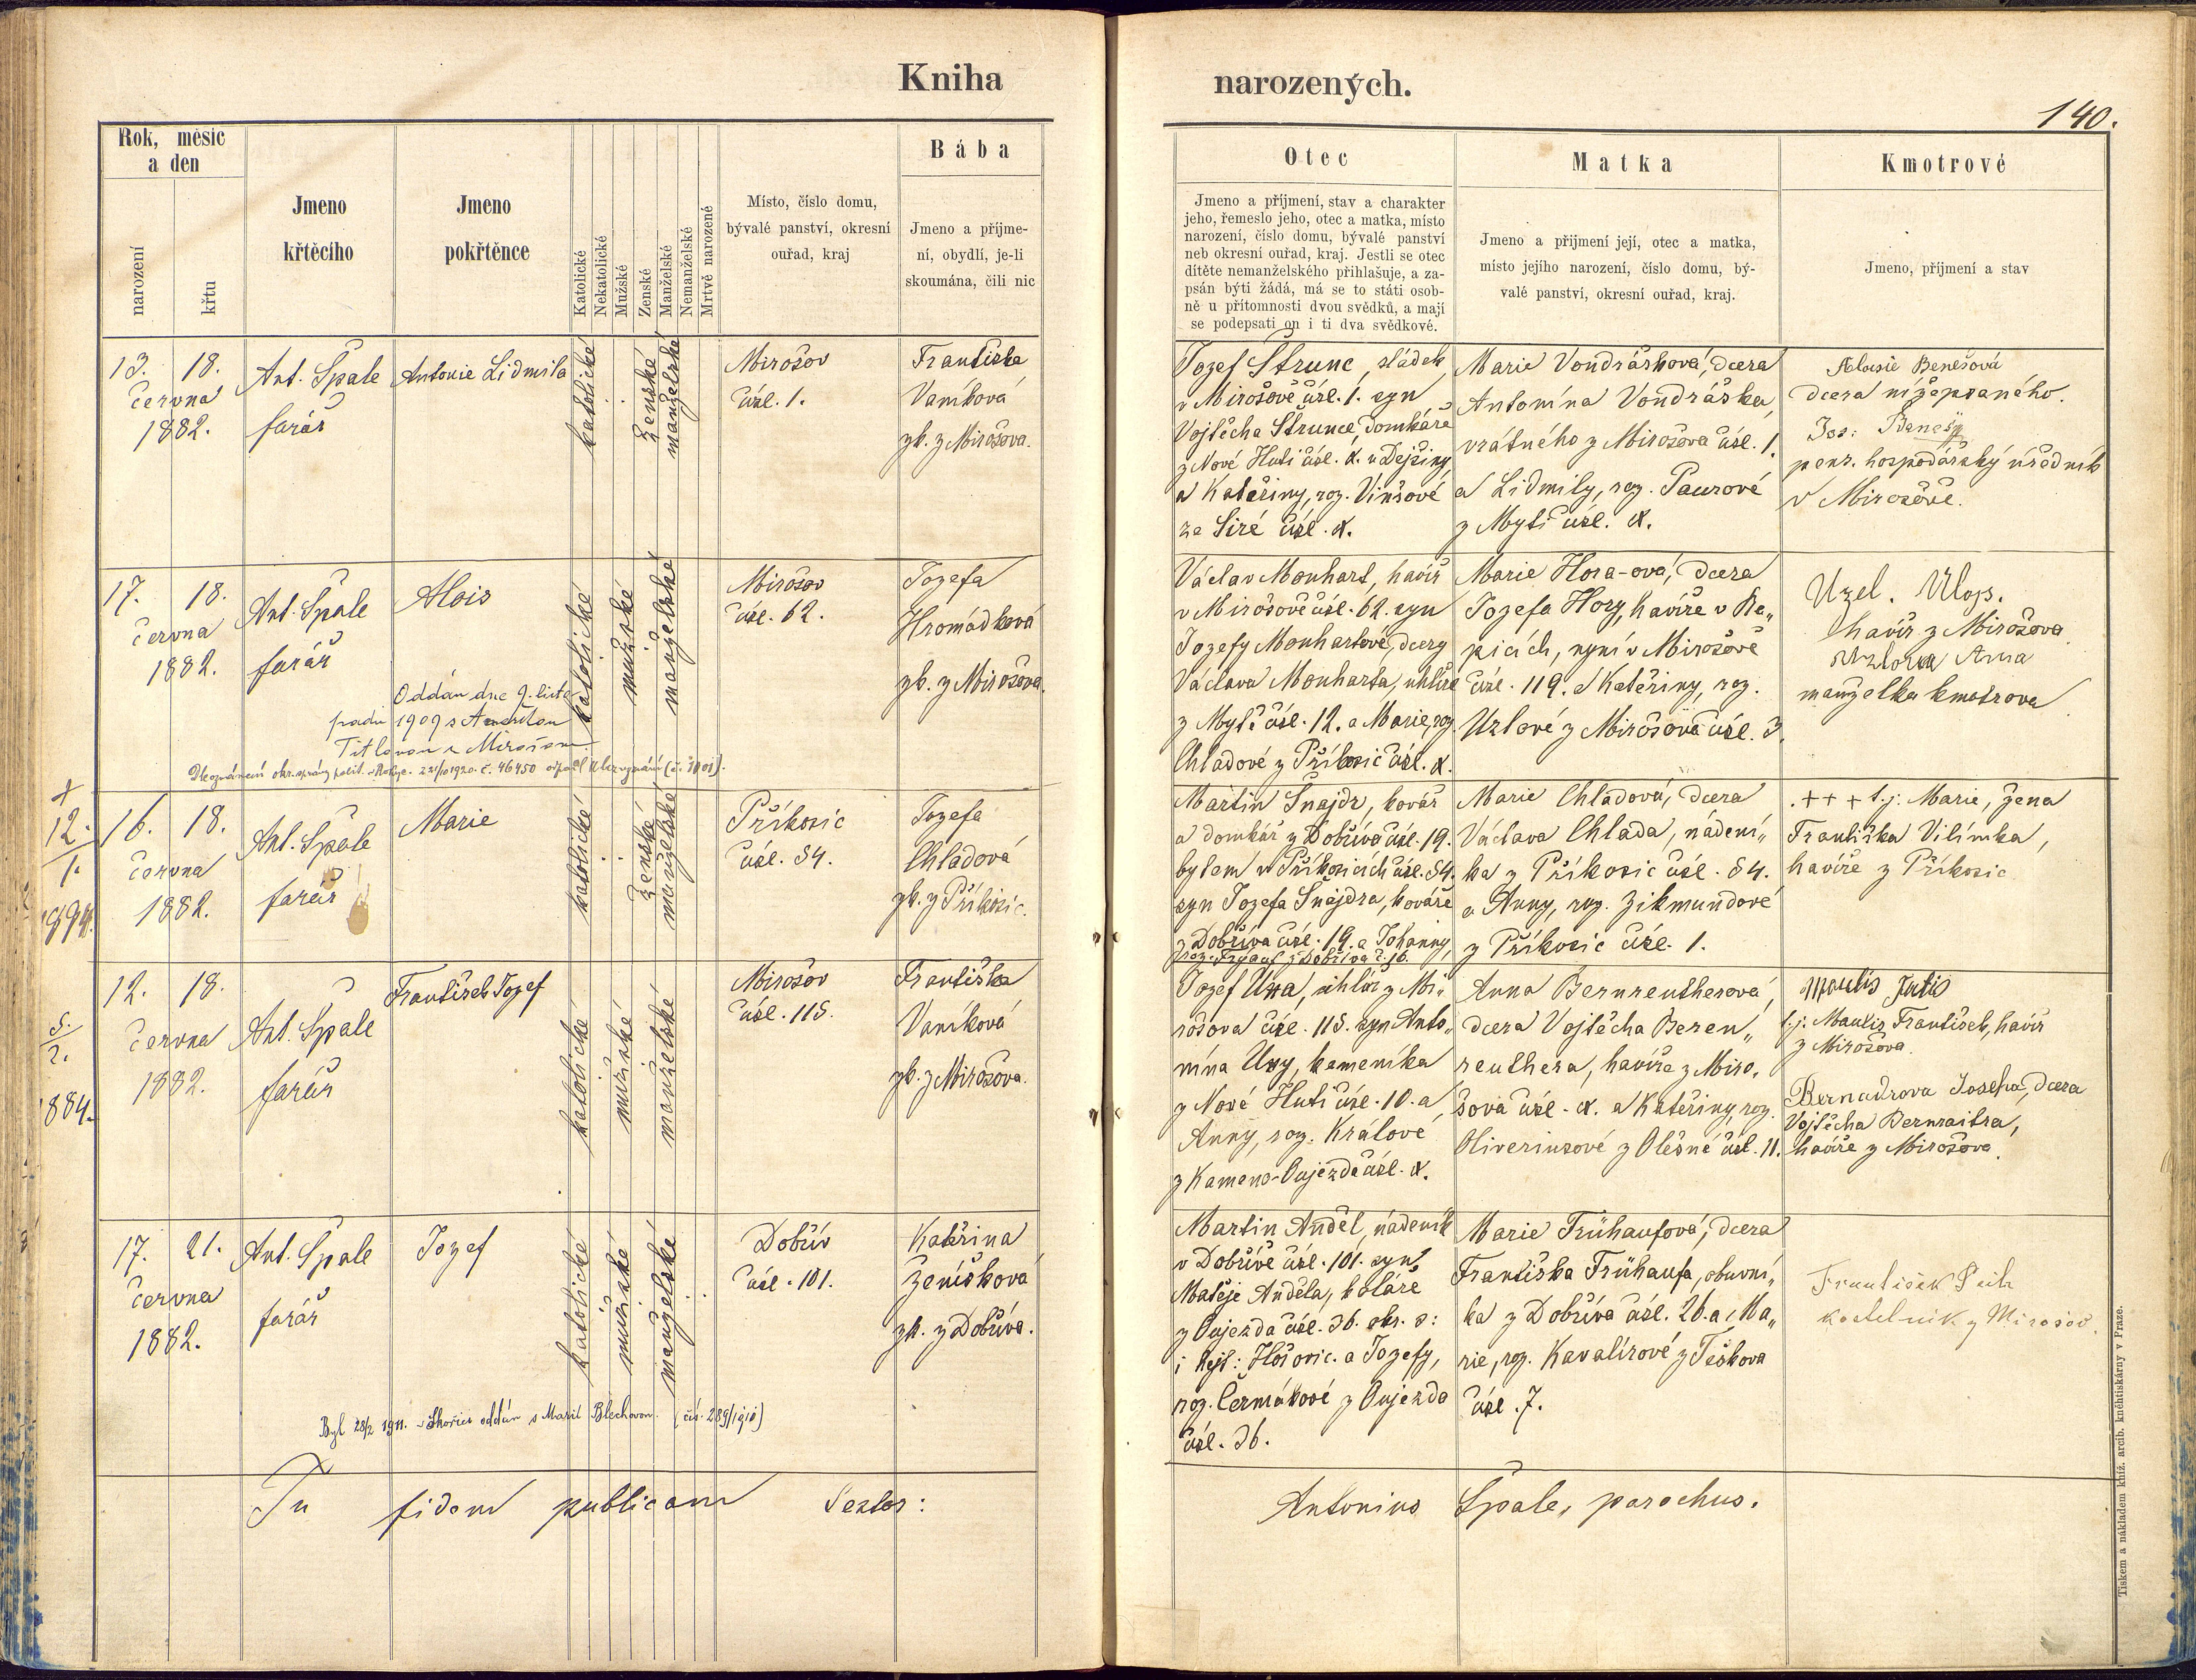 Kniha
narozených.
140.
Rok, měsíc
a den
narození
křtu
Jmeno
křtěcího
Jmeno
pokřtěnce
Katolické
Nekatolické
Mužské
Ženské
Manželské
Nemanželské
Mrtvě narozené
Místo, číslo domu,
bývalé panství, okresní
ouřad, kraj
Bába
Jmeno a příjme-
ní, obydlí, je-li
skoumána, čili nic
Otec
Jmeno a příjmení, stav a charakter
jeho, řemeslo jeho, otec a matka, místo
narození, číslo domu, bývalé panství
neb okresní ouřad, kraj. Jestli se otec
dítěte nemanželského přihlašuje, a za-
psán býti žádá, má se to státi osob-
ně u přítomnosti dvou svědků, a mají
se podepsati on i ti dva svědkové.
Matka
Jmeno a přijmení její, otec a matka,
místo jejího narození, číslo domu, bý-
valé panství, okresní ouřad, kraj.
Kmotrové
Jmeno, příjmení a stav
13. 18.
června
1882.
Ant. Špale
farář
Antonie Lidmila
katolické
ženské
manželské
Mirošov
čísl. 1.
Františka
Vaníková
zk. z Mirošova.
Jozef Štrunc, sládek
v Mirošově čísl. 1. syn
Vojtěcha Štrunce, domkáře
z Nové Huti čísl. X. u Dejšiny
a Kateřiny, roz. Vinšové
ze Siré čísl. X.
Marie Vondrášková, dcera
Antonína Vondráška,
vrátného z Mirošova čísl. 1.
a Lidmily, roz. Paurové
z Mýti čísl. X.
Aloisie Benešová
dcera nížepsaného.
Jos: Beneš
penz. hospodářský úředník
v Mirošově.
17. 18.
června
1882.
Ant. Špale
farář
Alois
Oddán dne 9. listo
padu 1909 s
Titlovou z Mirošova
katolické
mužské
manželské
Mirošov
čísl. 62.
Jozefa
Hromádková
zk. z Mirošova.
Václav Mouhart, havíř
v Mirošově čísl. 62. syn
Jozefy Mouhartové, dcery
Václava Mouharta, uhlíře
z Mýtě čísl. 12. a Marie, roz.
Chladové z Příkosic čísl. X.
Marie Hora-ová, dcera
Jozefa Hory, havíře v Re„
picích, nyní v Mirošově
čísl. 119. a Kateřiny, roz.
Uzlové z Mirošova čísl. 3.
Uzel. Alop.
havíř z Mirošova
Uzlova Anna
manželka kmotrova
+
12.
1.
16. 18.
června
1882.
Ant. Špale
farář
Marie
katolické
ženské
manželské
Příkosic
čísl. 54.
Jozefa
Chladová
zk. z Příkosic.
Martin Šnajdr, kovář
a domkář z Dobřívа čísl. 19.
bytem v Příkosicích čísl. 54.
syn Jozefa Šnajdra, kováře
z Dobříva čísl. 19. a Johanny,
Marie Chladová, dcera
Václava Chlada, nádení„
ka z Příkosic čísl. 54.
a Anny, roz. Zikmundové
z Příkosic čísl. 1.
+++ t.j: Marie, žena
Františka Vilímka,
havíře z Příkosic
5.
2.
1884.
12. 18.
června
1882.
Ant. Špale
farář
František Jozef
katolické
mužské
manželské
Mirošov
čísl. 115.
Františka
Vaníková
zk. z Mirošova.
Jozef Una, uhlíř z Mi„
rošova čísl. 115. syn Anto„
nína Uny, kameníka
z Nové Huti čísl. 10. a
Anny, roz. Králové
z Kameno-Oujezda čísl. X.
Anna Bernreutherová,
dcera Vojtěcha Beren„
reuthera, havíře z Miro„
šova čísl. X. a Kateřiny, roz.
Oliveriusové z Olešné čísl. 11.
t.j. Maulis František, havíř
z Mirošova.
Bernadrova Josefa, dcera
Vojtěcha Bernraitra,
havíře z Mirošova.
17. 21.
června
1882.
Ant. Špale
farář
Jozef
Byl 28/2 1911. v Skořici oddán s Marií Blechovou. (čís. 289/1910)
katolické
mužské
manželské
Dobřív
čísl. 101.
Kateřina
Ženíšková
zk. z Dobříva.
Martin Anděl, nádeník
v Dobřívě čísl. 101. syn
Matěje Anděla, koláře
z Oujezda čísl. 36. okr. s:
i hejt: Hořovic. a Jozefy,
roz. Čermákové z Oujezda
čísl. 36.
Marie Frühaufová, dcera
Františka Frühaufa, obuvní„
ka z Dobříva čísl. 26. a Ma„
rie, roz. Kavalírové z Těškova
čísl. 7.
František
kostelník z Mirošov
In fidem publicam Testor:
Antonius Špale, parochus.
Tiskem a nákladem kníž. arcib. kněhtiskárny v Praze.